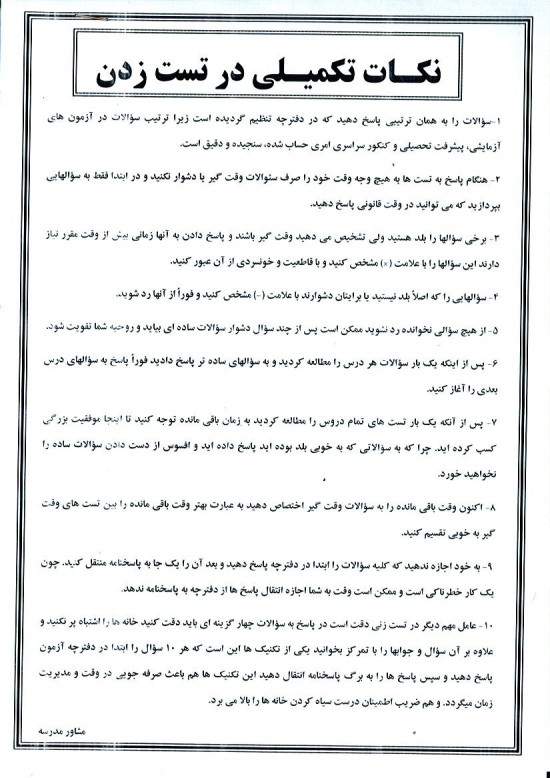 نکات تکمیلی در تست زدن
۱-سؤالات را به همان ترتیبی پاسخ دهید که در دفترچه تنظیم گردیده است زیرا ترتیب سؤالات در آزمون های
آزمایشی، پیشرفت تحصیلی و کنکور سراسری امری حساب شده، سنجیده و دقیق است.
۲- هنگام پاسخ به تست ها به هیچ وجه وقت خود را صرف سئوالات وقت گیر یا دشوار نکنید و در ابتدا فقط به سؤالهایی
بپردازید که می توانید در وقت قانونی پاسخ دهید.
۳- برخی سؤالها را بلد هستید ولی تشخیص می دهید وقت گیر باشند و پاسخ دادن به آنها زمانی بیش از وقت مقرر نیاز
دارند این سؤالها را با علامت (×) مشخص کنید و با قاطعیت و خونسردی از آن عبور کنید.
۴- سؤالهایی را که اصلاً بلد نیستید یا برایتان دشوارند با علامت (-) مشخص کنید و فوراً از آنها رد شوید.
۵- از هیچ سؤالی نخوانده رد نشوید ممکن است پس از چند سؤال دشوار سؤالات ساده ای بیاید و روحیه شما تقویت شود.
۶- پس از اینکه یک بار سؤالات هر درس را مطالعه کردید و به سؤالهای ساده تر پاسخ دادید فوراً پاسخ به سؤالهای درس
بعدی را آغاز کنید.
۷- پس از آنکه یک بار تست های تمام دروس را مطالعه کردید به زمان باقی مانده توجه کنید تا اینجا موفقیت بزرگی
کسب کرده اید. چرا که به سؤالاتی که به خوبی بلد بوده اید پاسخ داده اید و افسوس از دست دادن سؤالات ساده را
نخواهید خورد.
۸- اکنون وقت باقی مانده را به سؤالات وقت گیر اختصاص دهید به عبارت بهتر وقت باقی مانده را بین تست های وقت
گیر به خوبی تقسیم کنید.
۹- به خود اجازه ندهید که کلیه سؤالات را ابتدا در دفترچه پاسخ دهید و بعد آن را یک جا به پاسخنامه منتقل کنید. چون
یک کار خطرناکی است و ممکن است وقت به شما اجازه انتقال پاسخ ها از دفترچه به پاسخنامه ندهد.
۱۰- عامل مهم دیگر در تست زنی دقت است در پاسخ به سؤالات چهار گزینه ای باید دقت کنید خانه ها را اشتباه پر نکنید و
علاوه بر آن سؤال و جوابها را با تمرکز بخوانید یکی از تکنیک ها این است که هر ۱۰ سؤال را ابتدا در دفترچه آزمون
پاسخ دهید و سپس پاسخ ها را به برگ پاسخنامه انتقال دهید این تکنیک ها هم باعث صرفه جویی در وقت و مدیریت
زمان میگردد. و هم ضریب اطمینان درست سیاه کردن خانه ها را بالا می برد.
مشاور مدرسه